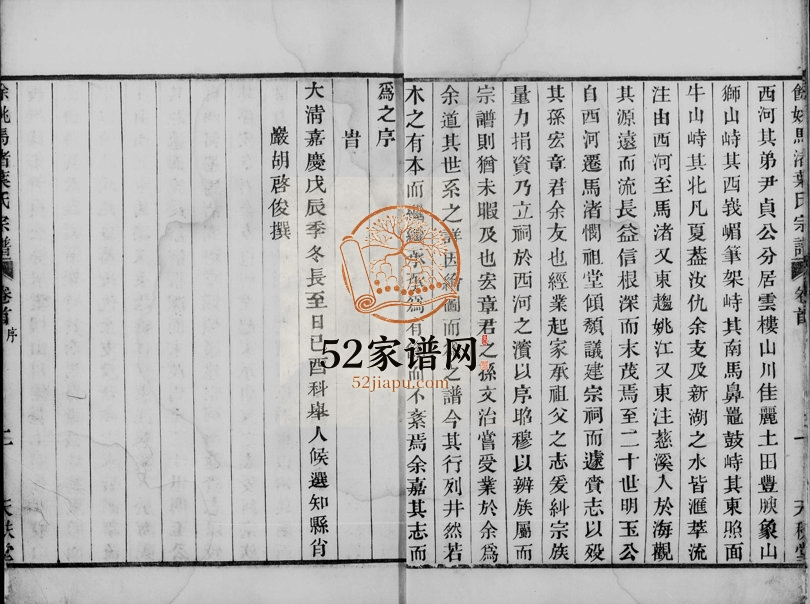 餘姚馬渚葉氏宗譜
卷首
西河其弟尹貞公分居雲樓山川佳麗土田豐腴象山
獅山峙其西峩嵋筆架峙其南馬鼻鼉鼓峙其東照面
牛山峙其北凡夏蓋汝仇余支及新湖之水皆滙萃流
注由西河至馬渚又東趨姚江又東注慈溪人於海觀
其源遠而流長益信根深而末茂焉至二十世明玉公
自西河遷馬渚憫祖堂傾頹議建宗祠而遽賫志以歿
其孫宏章君余友也經業起家承祖父之志爰糾宗族
量力捐資乃立祠於西河之濆以序昭穆以辨族屬而
宗譜則猶未暇及也宏章君之孫文治嘗受業於余爲
余道其世系之詳因繪圖而 之譜今其行列井然若
木之有本而繼繼承承爲有 而不紊焉余嘉其志而
爲之序
旹
大清嘉慶戊辰季冬長至日己酉科舉人候選知縣眷
嚴胡啓俊撰
餘姚馬渚葉氏宗譜
卷首
序
二
天秩堂
52家谱网
52jiapu.com